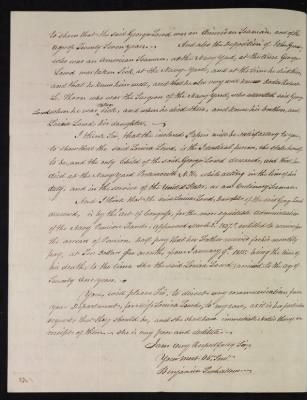 to show that the said George Lund was an American Seaman, and of the
age of Twenty Seven years. And also the deposition of John
who was an American Seaman, at the Navy Yard, at the time George
Lund was taken Sick, at the Navy Yard, and at the time he died there,
and that he knew him well, and that he also very well knew
L. Thorn was was the Surgeon of the Navy Yard, who attended said George
Lund when he was sick, and when he died there, and knew his brother, and
Louisa Lund his daughter.
I think Sir, that the inclosed Papers will be satisfactory to you
to show that the said Louisa Lund, is the identical person, she claims
to be, and the only Child of the said George Lund deceased, and that he
died at the Navy Yard Portsmouth N.H. while acting in the line of his
duty, and in the service of the United States, as an Ordinary Seaman.
And I think that the said Louisa Lund, daughter of the said George Lund
deceased, is by the act of Congress, for the more equitable administration
of the Navy Pension Fund, approved March 3d 1837, entitled to receive
the arrears of Pension, half pay that her Father received for his monthly
pay, at Ten dollars per month from January 1815, being the time of
his death, to the time she the said Louisa Lund, arrived to the age of
Twenty one years.
You will please Sir, to direct any communication from
your Department, for Miss Louisa Lund, to my care, as it is her particular
request that they should be, and she shall have immediate notice
receipt of them. she is very poor and
I am very respectfully Sir,
Your most Ob. Servt
Benjamin